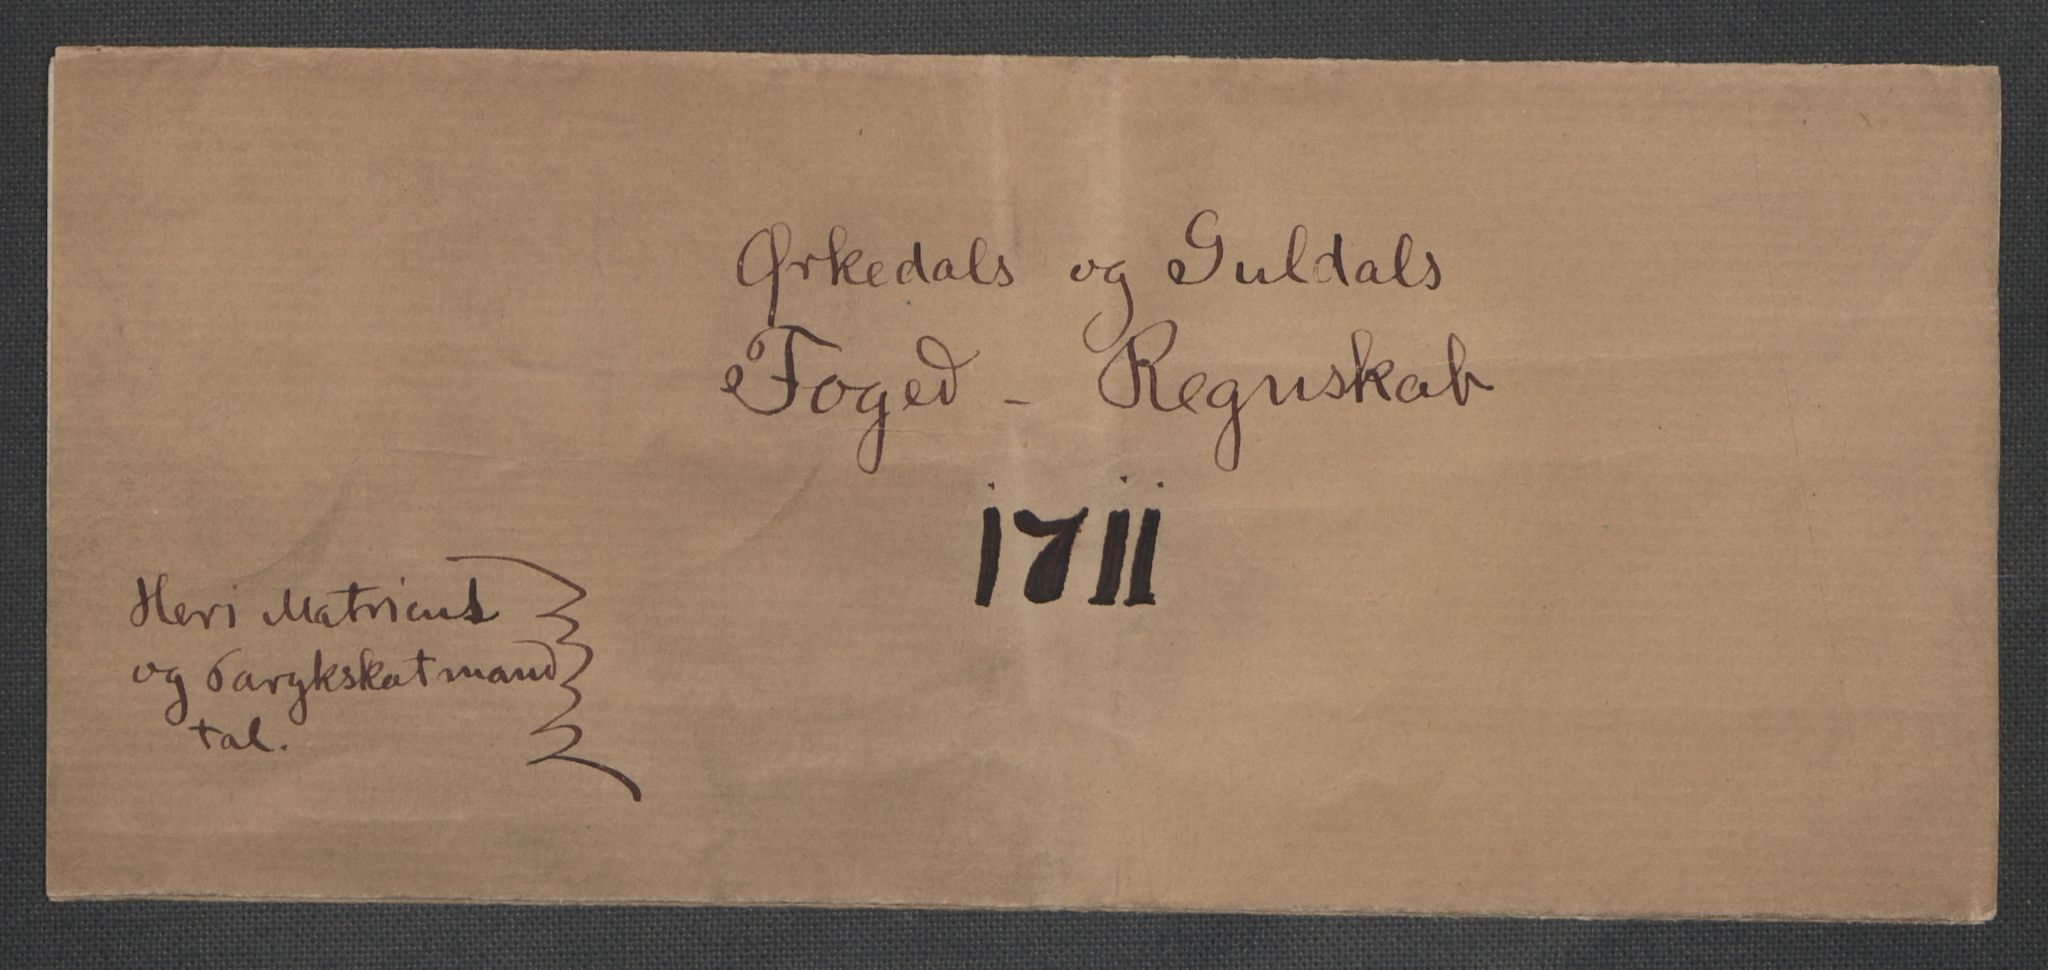 Ørkedals og Guldals
Foged - Regnskab
1711
Heri Matricul
og Pargkskatmand
tal.